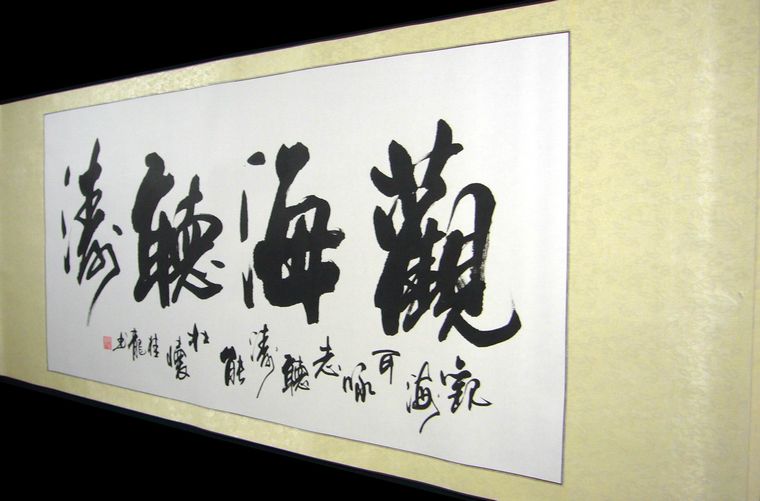 觀海聽濤
觀海可詠志聽濤能壯懷桂龍书